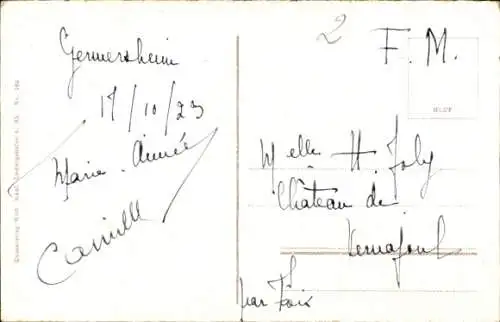 Germersheim
17/10/23
Marie-Aimée
Camille
2
F. M.
Melle H. Joly
Château de
Vernajoul
par Foix